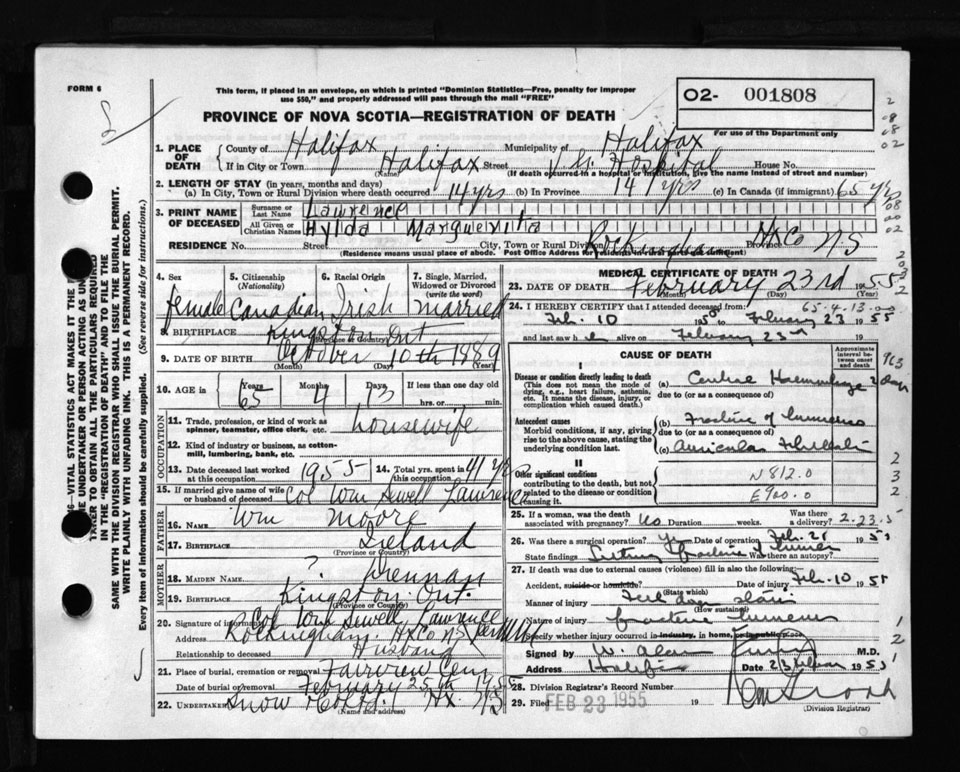 FORM 6
This form, if placed in an envelope, on which is printed "Dominion Statistics—Free, penalty for improper
use $50," and properly addressed will pass through the mail "FREE"
O2- 001808
PROVINCE OF NOVA SCOTIA—REGISTRATION OF DEATH
For use of the Department only
1. PLACE OF DEATH
County of Halifax Municipality of Halifax
If in City or Town Halifax Street V.G. Hospital House No.
(Name) (If death occurred in a hospital or institution, give the name instead of street and number)
2. LENGTH OF STAY (in years, months and days)
(a) In City, Town or Rural Division where death occurred 14 yrs (b) In Province 14 yrs (c) In Canada (if immigrant) 65 yrs
3. PRINT NAME OF DECEASED
Surname or Last Name Lawrence
All Given or Christian Names Hylda Marguerita
RESIDENCE No. Street City, Town or Rural Division Rockingham Province Hx Co NS
(Residence means usual place of abode. Post Office Address for residents in rural parts not sufficient)
4. Sex female
5. Citizenship (Nationality) Canadian
6. Racial Origin Irish
7. Single, Married, Widowed or Divorced (write the word) married
8. BIRTHPLACE Kingston Ont
(Province or Country)
9. DATE OF BIRTH October 10th 1889
(Month) (Day) (Year)
10. AGE in Years 65 Months 4 Days 13 If less than one day old
hrs. or min.
OCCUPATION
11. Trade, profession, or kind of work as spinner, teamster, office clerk, etc. housewife
12. Kind of industry or business, as cotton-mill, lumbering, bank, etc.
13. Date deceased last worked at this occupation 1955
14. Total yrs. spent in this occupation 41 yrs
15. If married give name of wife or husband of deceased Col Wm Sewell Lawrence
FATHER
16. NAME Wm Moore
17. BIRTHPLACE Ireland
(Province or Country)
MOTHER
18. MAIDEN NAME ? Drennan
19. BIRTHPLACE Kingston Ont.
(Province or Country)
20. Signature of informant Col Wm Sewell Lawrence
Address Rockingham Hx Co NS
Relationship to deceased Husband
21. Place of burial, cremation or removal Fairview Cem
Date of burial or removal February 25th 1955
22. UNDERTAKER Snow & Co Ltd. Hx NS
(Name and address)
MEDICAL CERTIFICATE OF DEATH
23. DATE OF DEATH February 23rd 1955
(Month) (Day) (Year)
24. I HEREBY CERTIFY that I attended deceased from 65-4-13
Feb. 10 1955 to February 23 1955
and last saw h alive on February
CAUSE OF DEATH
Approximate interval between onset and death
I
Disease or condition directly leading to death
(This does not mean the mode of dying, e.g., heart failure, asthenia, etc. It means the disease, injury, or complication which caused death.)
(a) Haemorrhage 2 days
due to (or as a consequence of)
Antecedent causes
Morbid conditions, if any, giving rise to the above cause, stating the underlying condition last.
(b) Fracture of humerus
due to (or as a consequence of)
(c) Auricular
II
Other significant conditions contributing to the death, but not related to the disease or condition causing it.
N812.0
E900.0
25. If a woman, was the death associated with pregnancy? No Duration weeks. Was there a delivery? 2.23.5
26. Was there a surgical operation? yes Date of operation Feb. 21 1955
State findings fracture humerus Was there an autopsy?
27. If death was due to external causes (violence) fill in also the following:—
Accident, suicide or homicide? Date of injury Feb. 10 1955
(State which)
Manner of injury Fell down stairs
(How sustained)
Nature of injury fracture humerus
Specify whether injury occurred in industry, in home, or in public place
Signed by W. Alan M.D.
Address Halifax Date 23 1955
28. Division Registrar's Record Number
29. Filed FEB 23 1955 19
(Division Registrar)
SAME WITH THE DIVISION REGISTRAR WHO SHALL ISSUE THE BURIAL PERMIT.
WRITE PLAINLY WITH UNFADING INK. THIS IS A PERMANENT RECORD.
Every item of information should be carefully supplied. (See reverse side for instructions.)